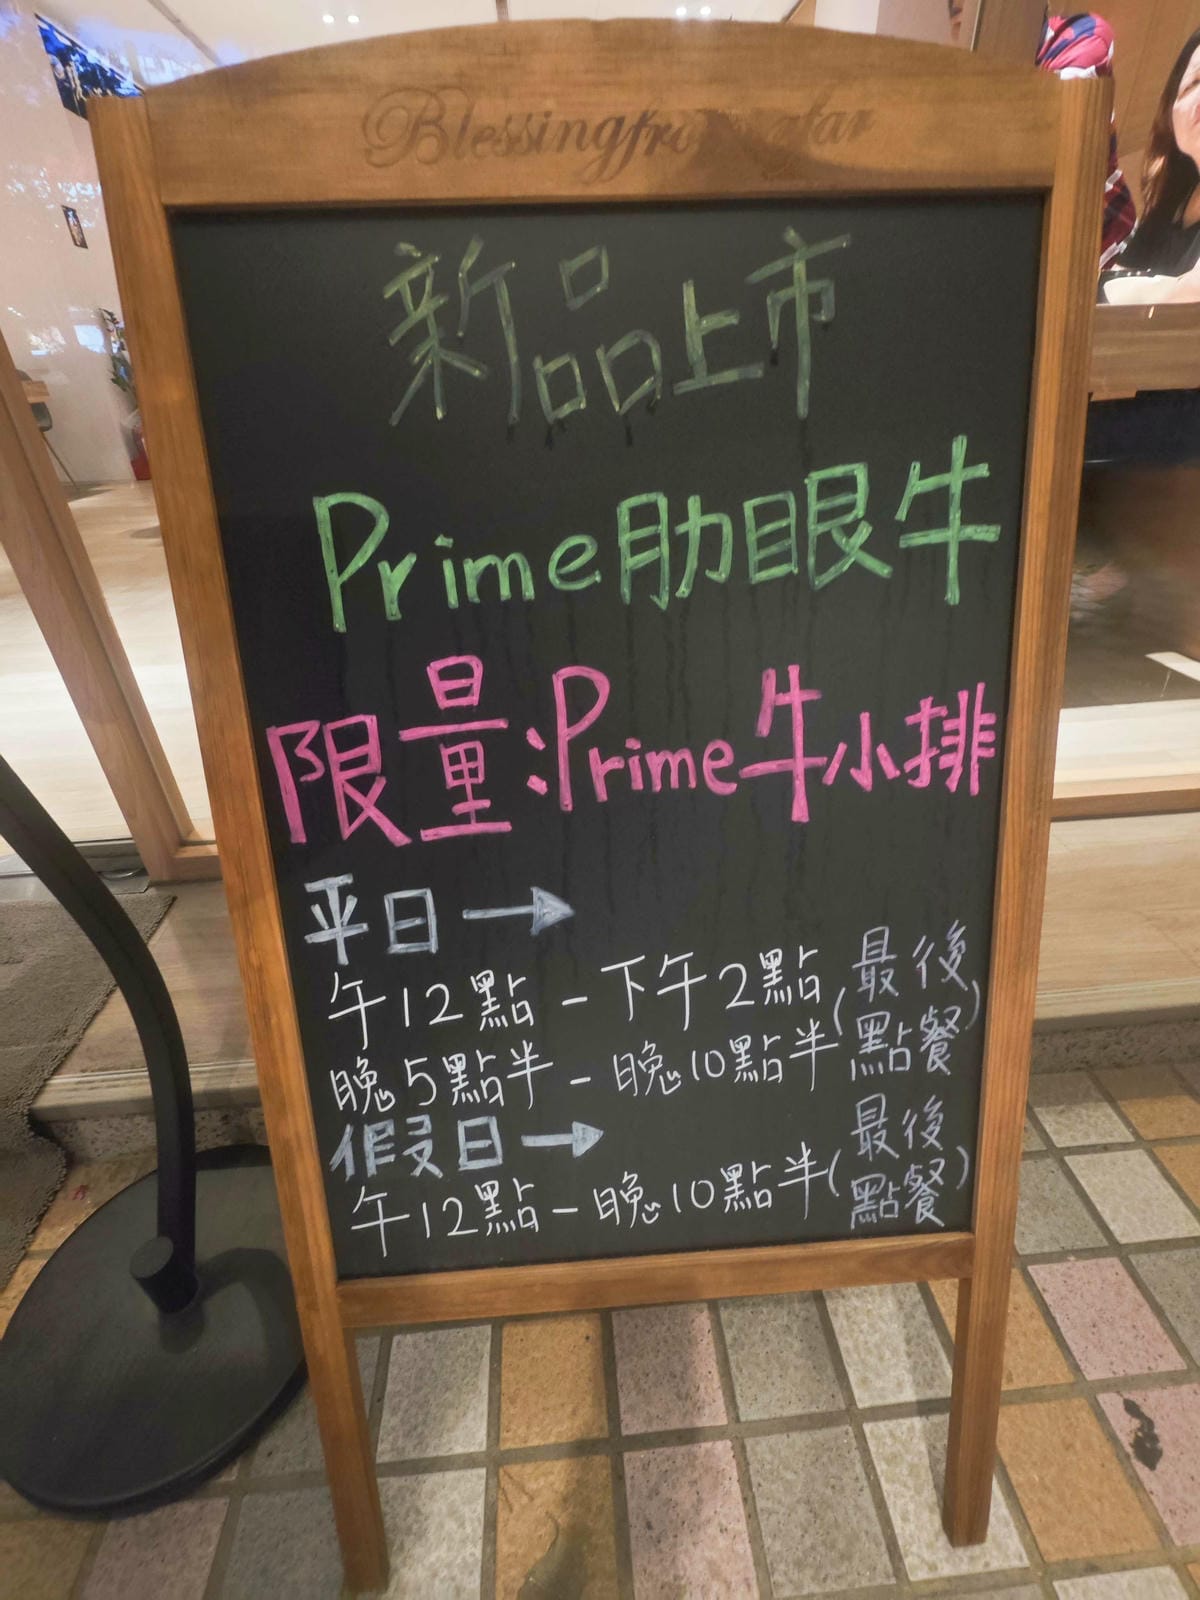 Blessingfromafar
新品上市
Prime肋眼牛
限量:Prime牛小排
平日→
午12點-下午2點
晚5點半-晚10點半(最後點餐)
假日→
午12點-晚10點半(最後點餐)